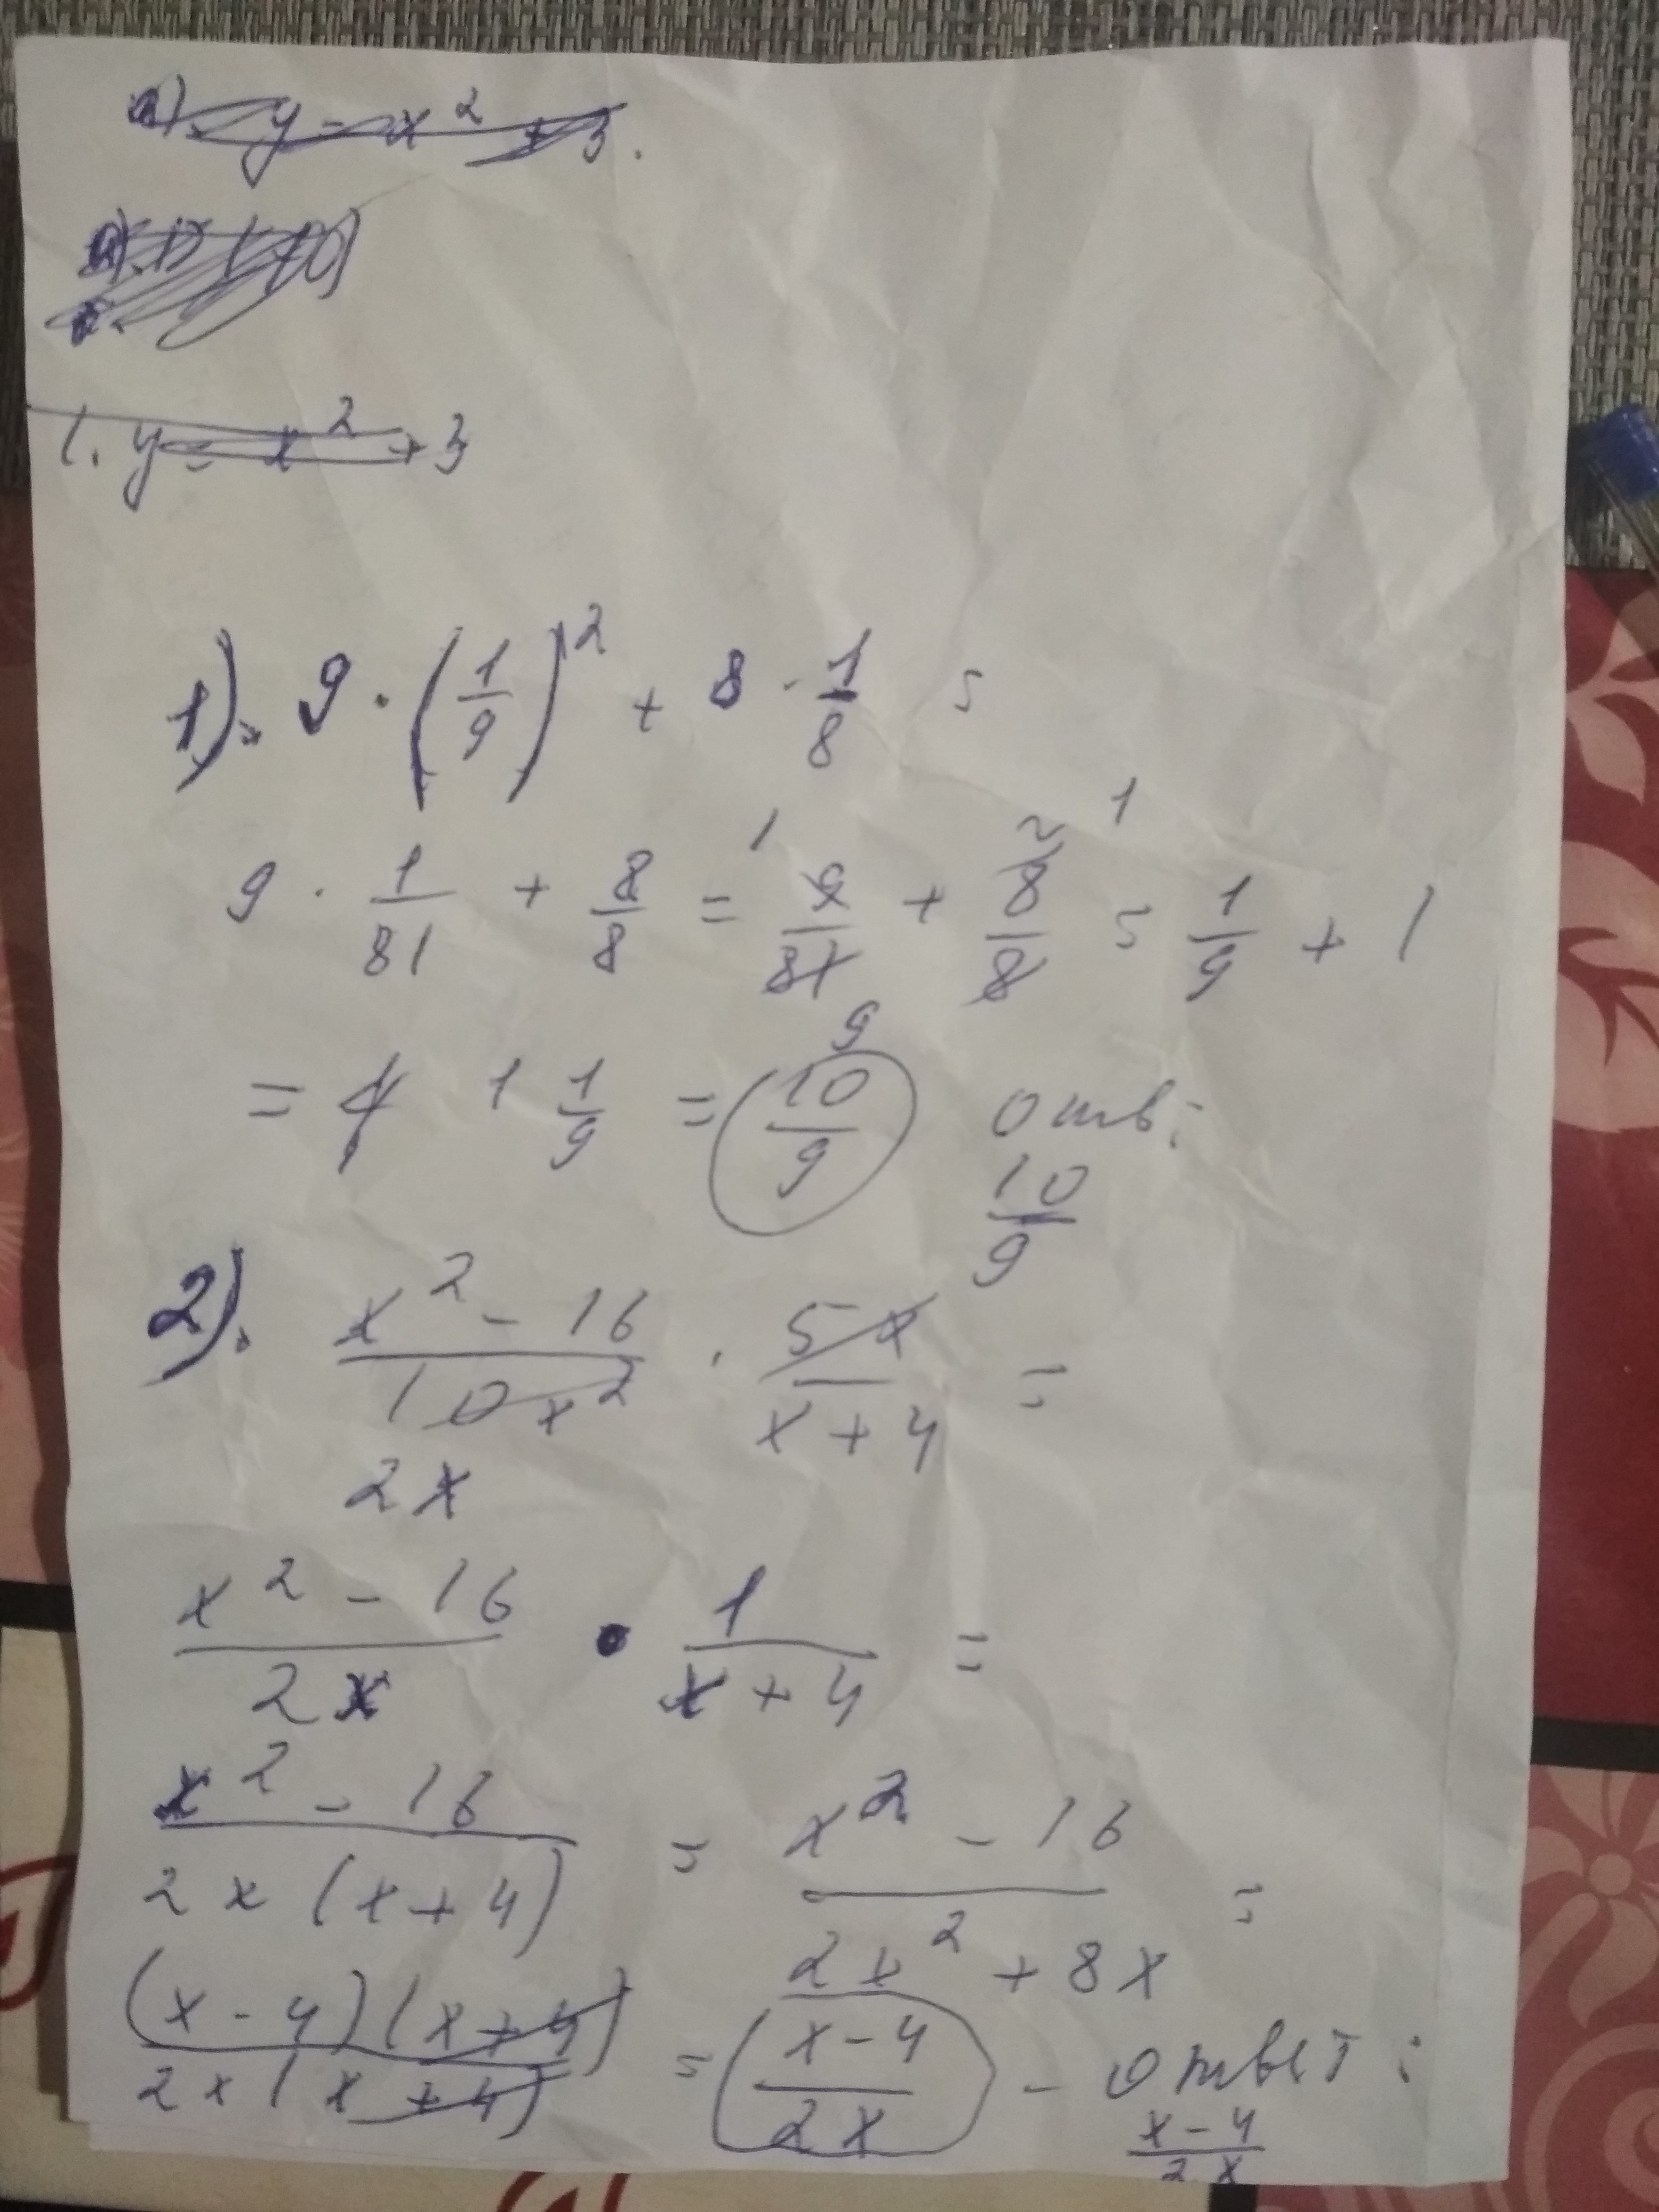 а) y = x² + 3.
1. y = x² + 3
1). 9 · (1/9)² + 8 · 1/8 =
9 · 1/81 + 8/8 = 9/81 + 8/8 = 1/9 + 1
= 1 1/9 = 10/9 Отв:
10/9
2). x² - 16 / 10x² · 5x / x + 4 =
2x
x² - 16 / 2x · 1 / x + 4 =
x² - 16 / 2x (x + 4) = x² - 16 / 2x² + 8x =
(x - 4)(x + 4) / 2x (x + 4) = x - 4 / 2x - Ответ:
x - 4 / 2x